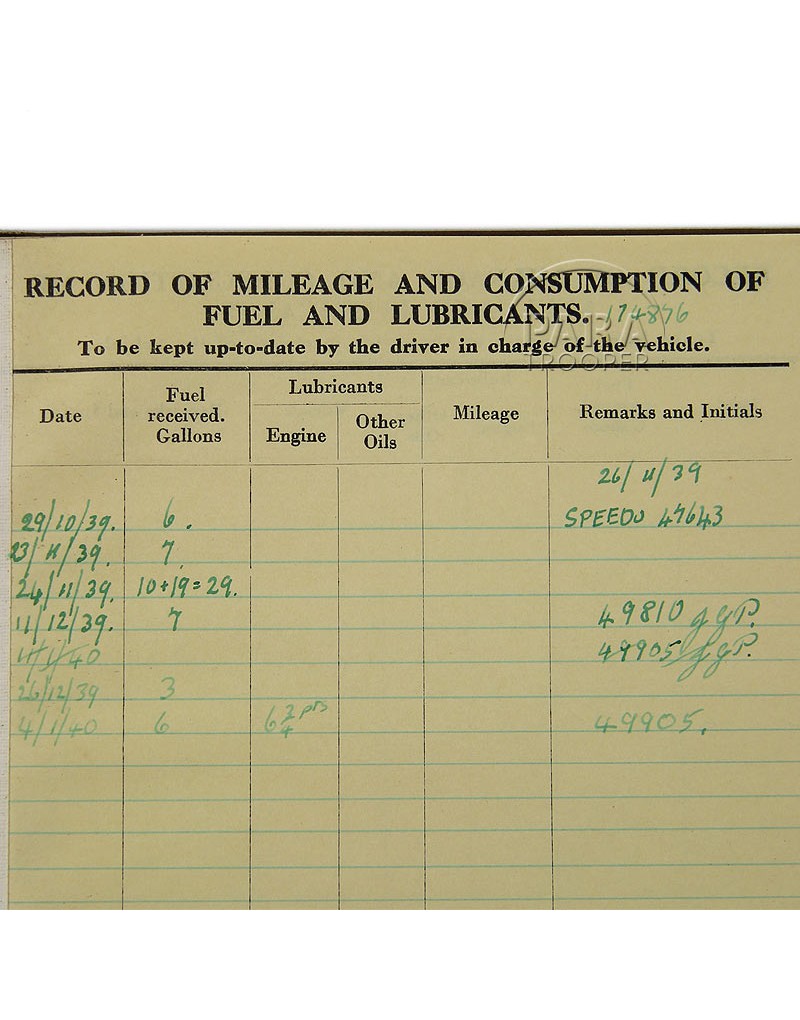 RECORD OF MILEAGE AND CONSUMPTION OF
FUEL AND LUBRICANTS. 174876
PARA
TROOPER
To be kept up-to-date by the driver in charge of the vehicle.
Date Fuel received. Gallons Lubricants Engine Other Oils Mileage Remarks and Initials
26/11/39
29/10/39. 6. SPEEDO 47643
23/11/39. 7
24/11/39. 10+19=29.
11/12/39. 7 49810 JGP.
4/1/40 49905 JGP.
26/12/39 3
4/1/40 6 6 3/4 pts 49905.